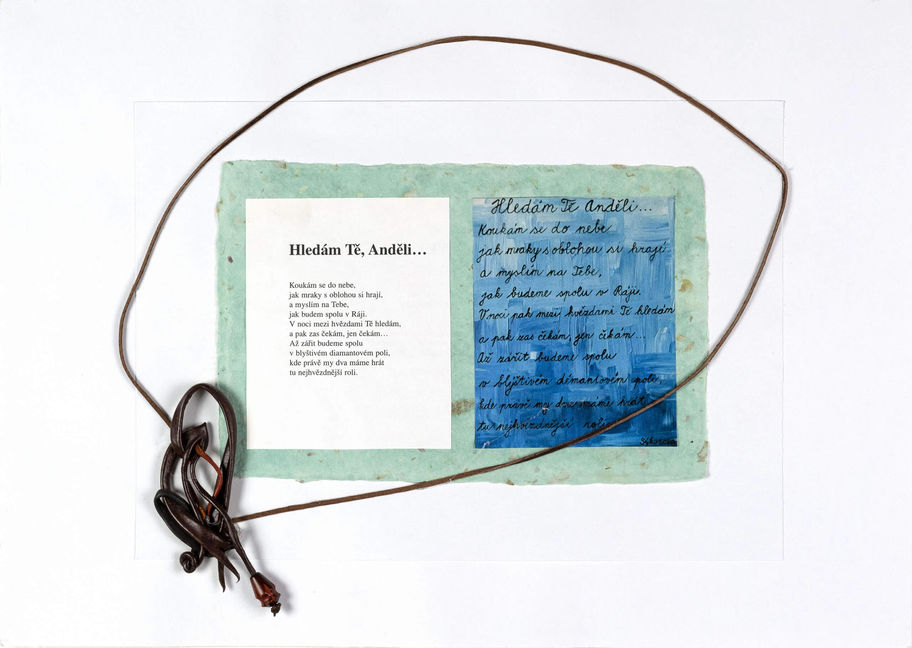 Hledám Tě, Anděli...
Koukám se do nebe,
jak mraky s oblohou si hrají,
a myslím na Tebe,
jak budem spolu v Ráji.
V noci mezi hvězdami Tě hledám,
a pak zas čekám, jen čekám...
Až zářit budeme spolu
v blyštivém diamantovém poli,
kde právě my dva máme hrát
tu nejhvězdnější roli.
Hledám Tě Anděli...
Koukám se do nebe
jak mraky s oblohou si hrají
a myslím na Tebe,
jak budeme spolu v Ráji.
V noci pak mezi hvězdami Tě hledám
a pak zas čekám, jen čekám...
Až zářit budeme spolu
v blyštivém démantovém
kde právě my dva máme hrát
tu nejhvězdnější roli